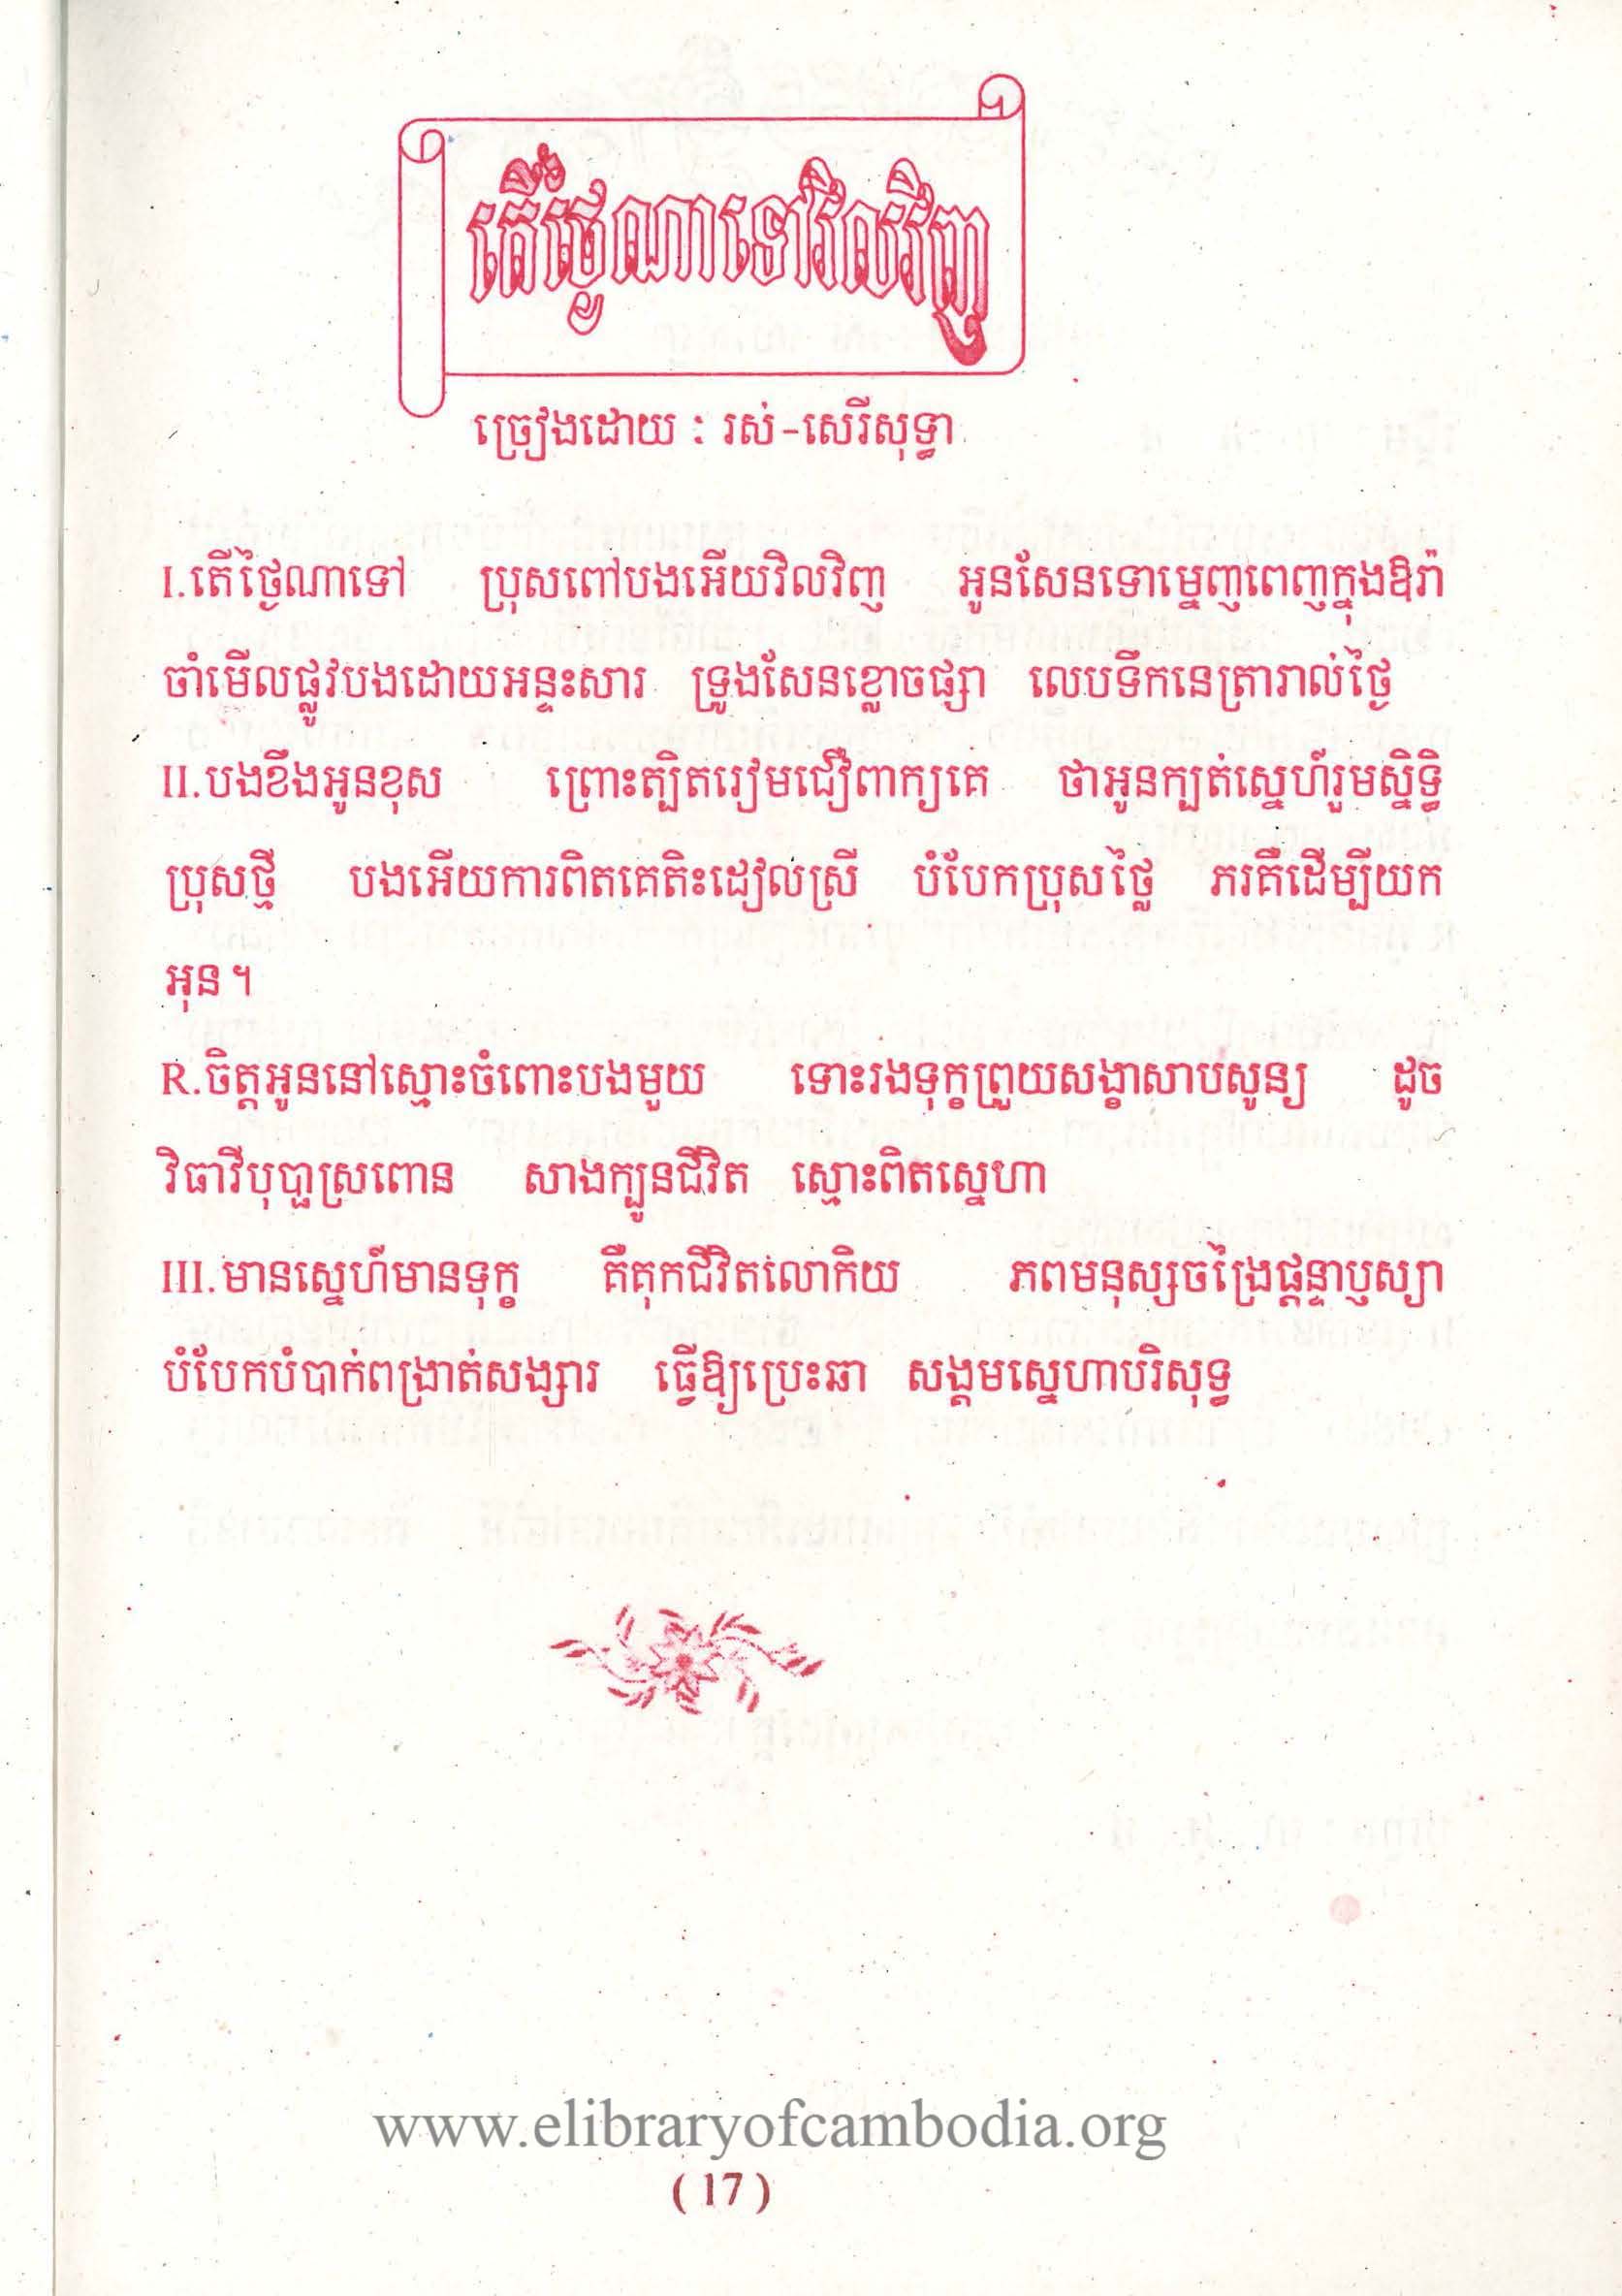 តើថ្ងៃណាទៅវិលវិញ
ច្រៀងដោយ : រស់-សេរីសុទ្ធា
I.តើថ្ងៃណាទៅ ប្រុសពៅបងអើយវិលវិញ អូនសែនទោម្នេញពេញក្នុងឱរ៉ា
ចាំមើលផ្លូវបងដោយអន្ទះសារ ទ្រូងសែនខ្លោចផ្សា លេបទឹកនេត្រារាល់ថ្ងៃ
II.បងខឹងអូនខុស ព្រោះត្បិតរៀមជឿពាក្យគេ ថាអូនក្បត់ស្នេហ៍រួមស្និទ្ធិ
ប្រុសថ្មី បងអើយការពិតគេតិះដៀលស្រី បំបែកប្រុសថ្លៃ ភរគឺដើម្បីយក
អុន។
R.ចិត្តអូននៅស្មោះចំពោះបងមួយ ទោះរងទុក្ខព្រួយសង្ខាសាបសូន្យ ដូច
វិធាវីបុប្ផាស្រពោន សាងក្បូនជីវិត ស្មោះពិតស្នេហា
III.មានស្នេហ៍មានទុក្ខ គឺគុកជីវិតលោកិយ ភពមនុស្សចង្រៃផ្តន្ទាប្ញស្យា
បំបែកបំបាក់ពង្រាត់សង្សារ ធ្វើឱ្យប្រេះឆា សង្គមស្នេហាបរិសុទ្ធ
www.elibraryofcambodia.org
( 17 )